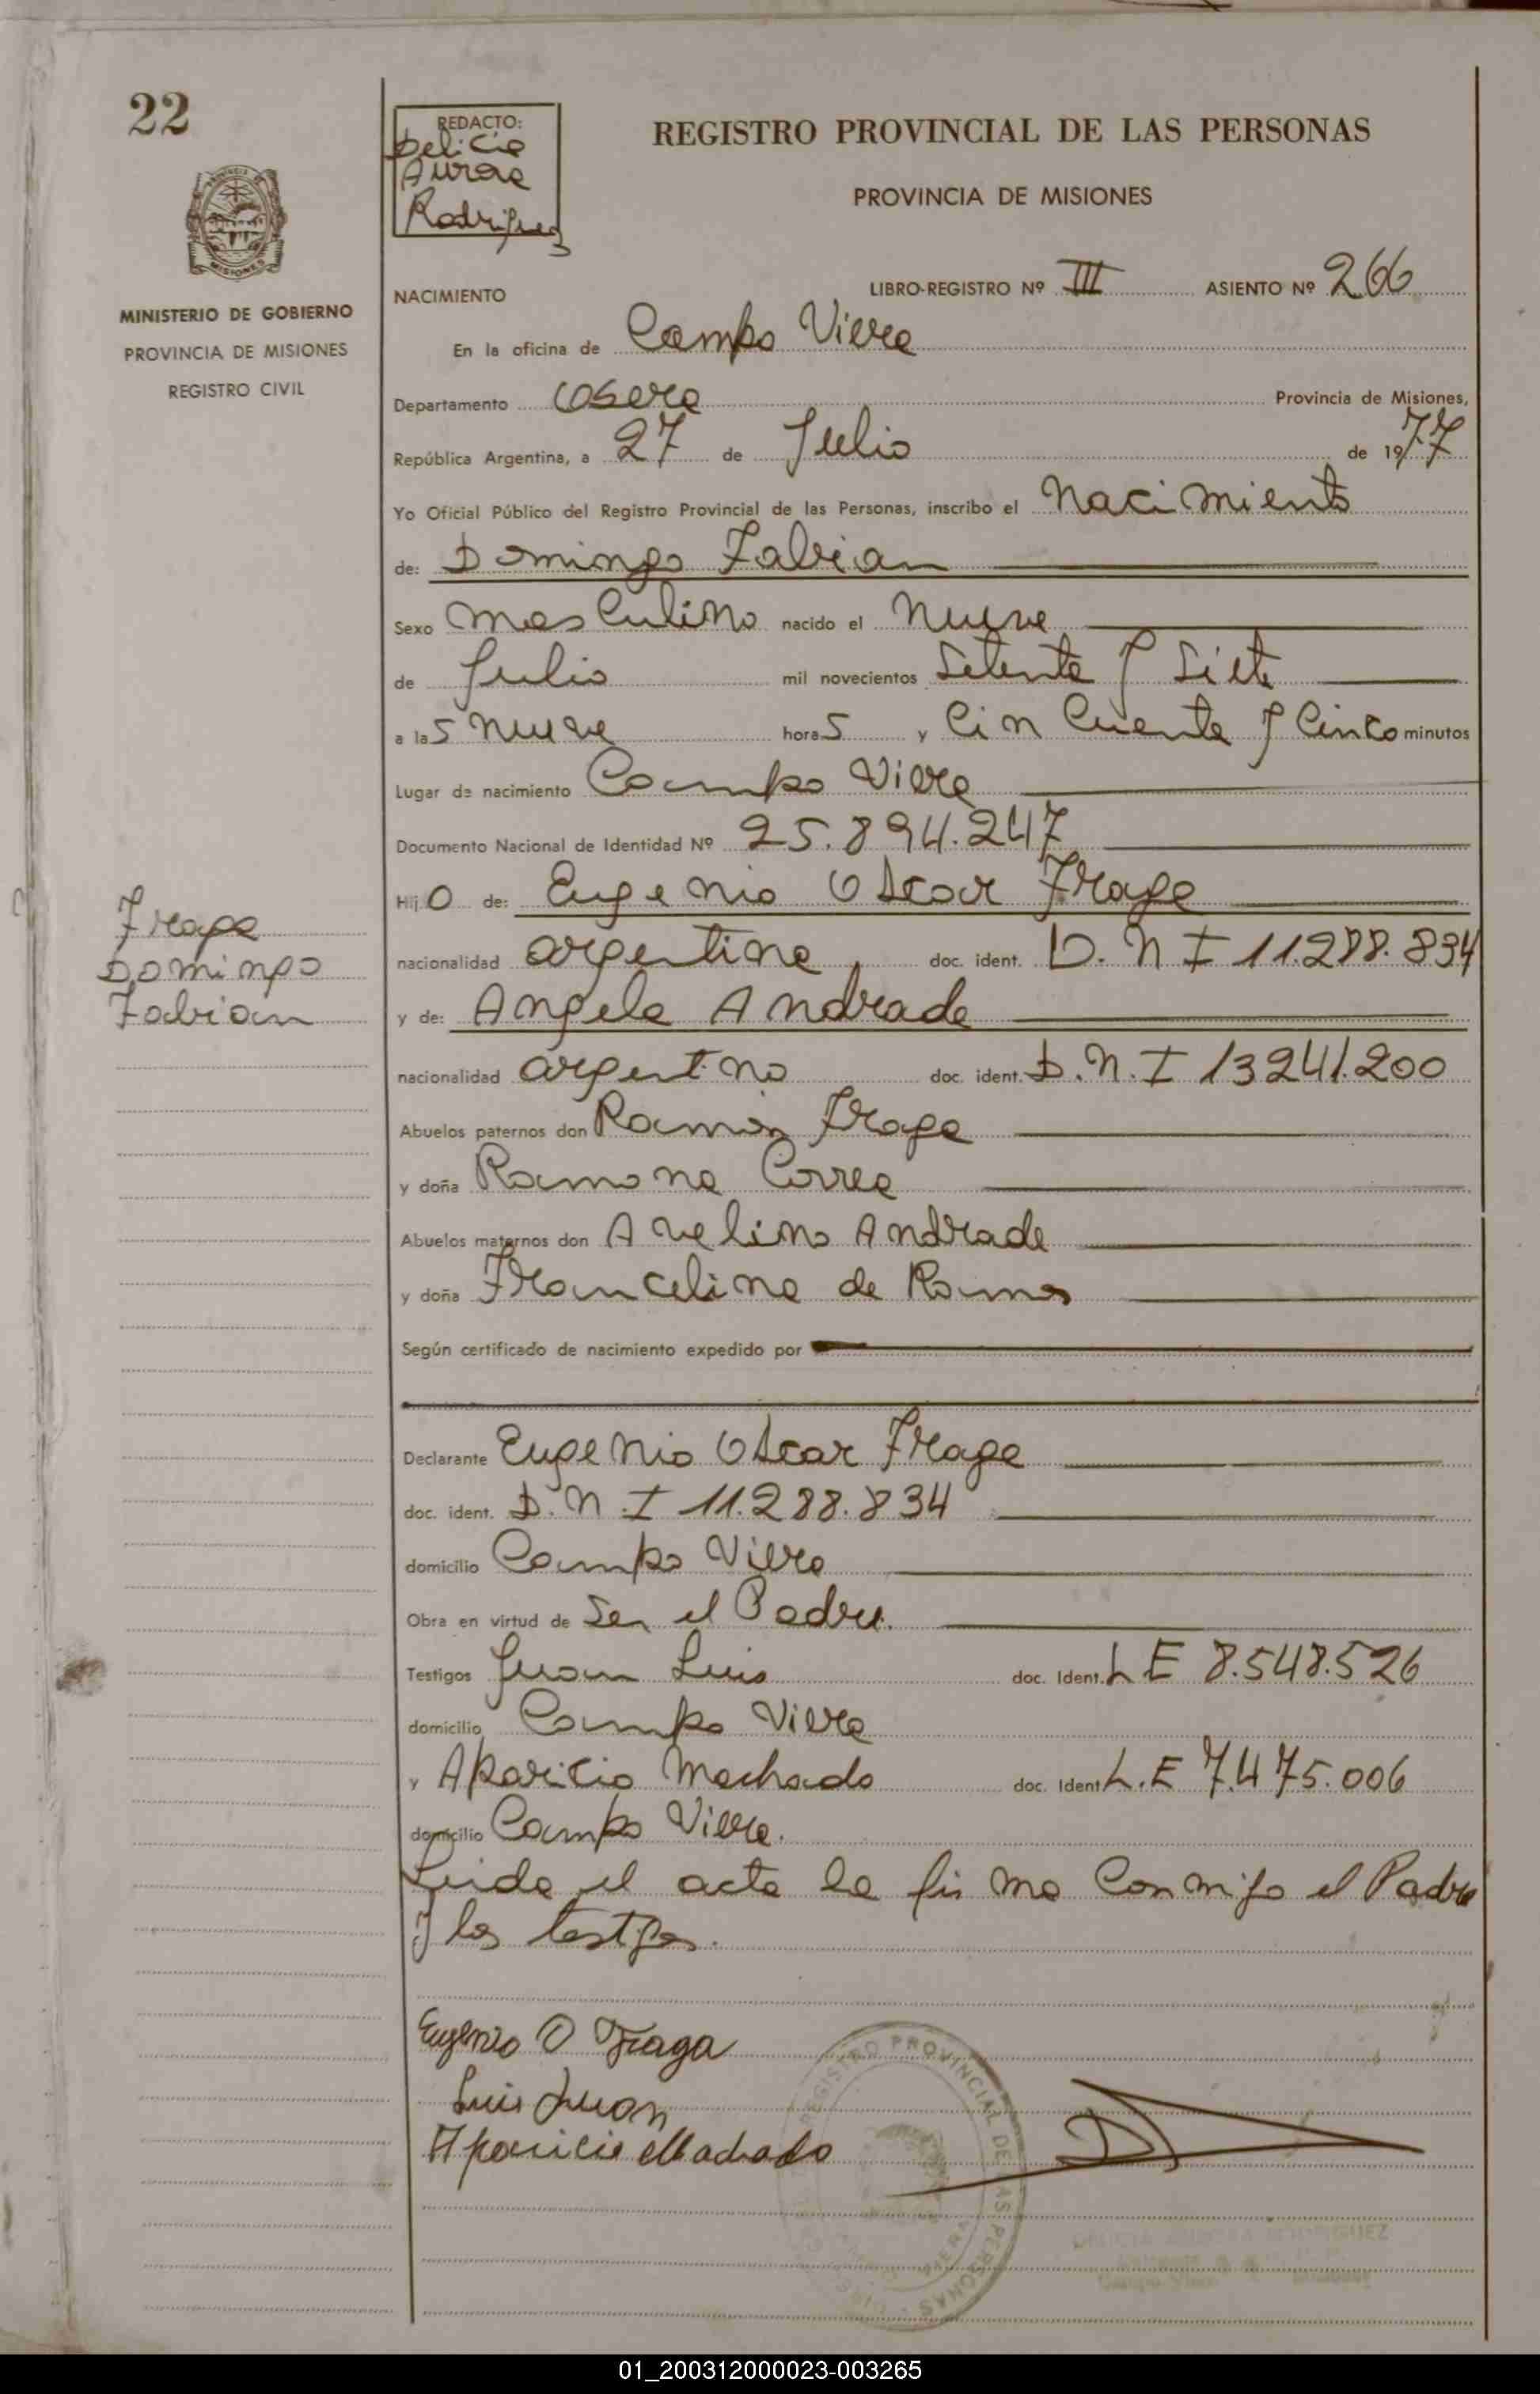 22
REDACTO:
Delicia
Aurora
Rodriguez
REGISTRO PROVINCIAL DE LAS PERSONAS
PROVINCIA DE MISIONES
MISIONES
MINISTERIO DE GOBIERNO
PROVINCIA DE MISIONES
REGISTRO CIVIL
NACIMIENTO
LIBRO-REGISTRO Nº III ASIENTO Nº 266
En la oficina de Campo Viera
Departamento Provincia de Misiones,
República Argentina, a 27 de Julio de 1977
Yo Oficial Público del Registro Provincial de las Personas, inscribo el Nacimiento
de: Domingo Fabian
Sexo masculino nacido el nueve
de Julio mil novecientos Setenta y Siete
a las nueve horas y Cincuenta y Cinco minutos
Lugar de nacimiento Campo Viera
Documento Nacional de Identidad Nº 25.894.247
Hijo de: Eugenio Oscar Fraga
nacionalidad argentina doc. ident. D.N I 11.288.834
y de: Angela Andrade
nacionalidad argentino doc. ident. D.N.I 13241.200
Abuelos paternos don Ramón Fraga
y doña Ramona Correa
Abuelos maternos don Avelino Andrade
y doña Francelina de Ramos
Según certificado de nacimiento expedido por
Fraga
Domingo
Fabian
Declarante Eugenio Oscar Fraga
doc. ident. D.N.I 11.288.834
domicilio Campo Viera
Obra en virtud de Ser el Padre.
Testigos Juan Luis doc. Ident. L E 8.548.526
domicilio Campo Viera
y Aparicio Machado doc. Ident L.E 7.475.006
domicilio Campo Viera.
Leida el acta la firma Conmigo el Padre
y los testigos.
Eugenio O Fraga
Luis Juan
Aparicio Machado
REGISTRO PROVINCIAL DE LAS PERSONAS
RODRIGUEZ
01_200312000023-003265